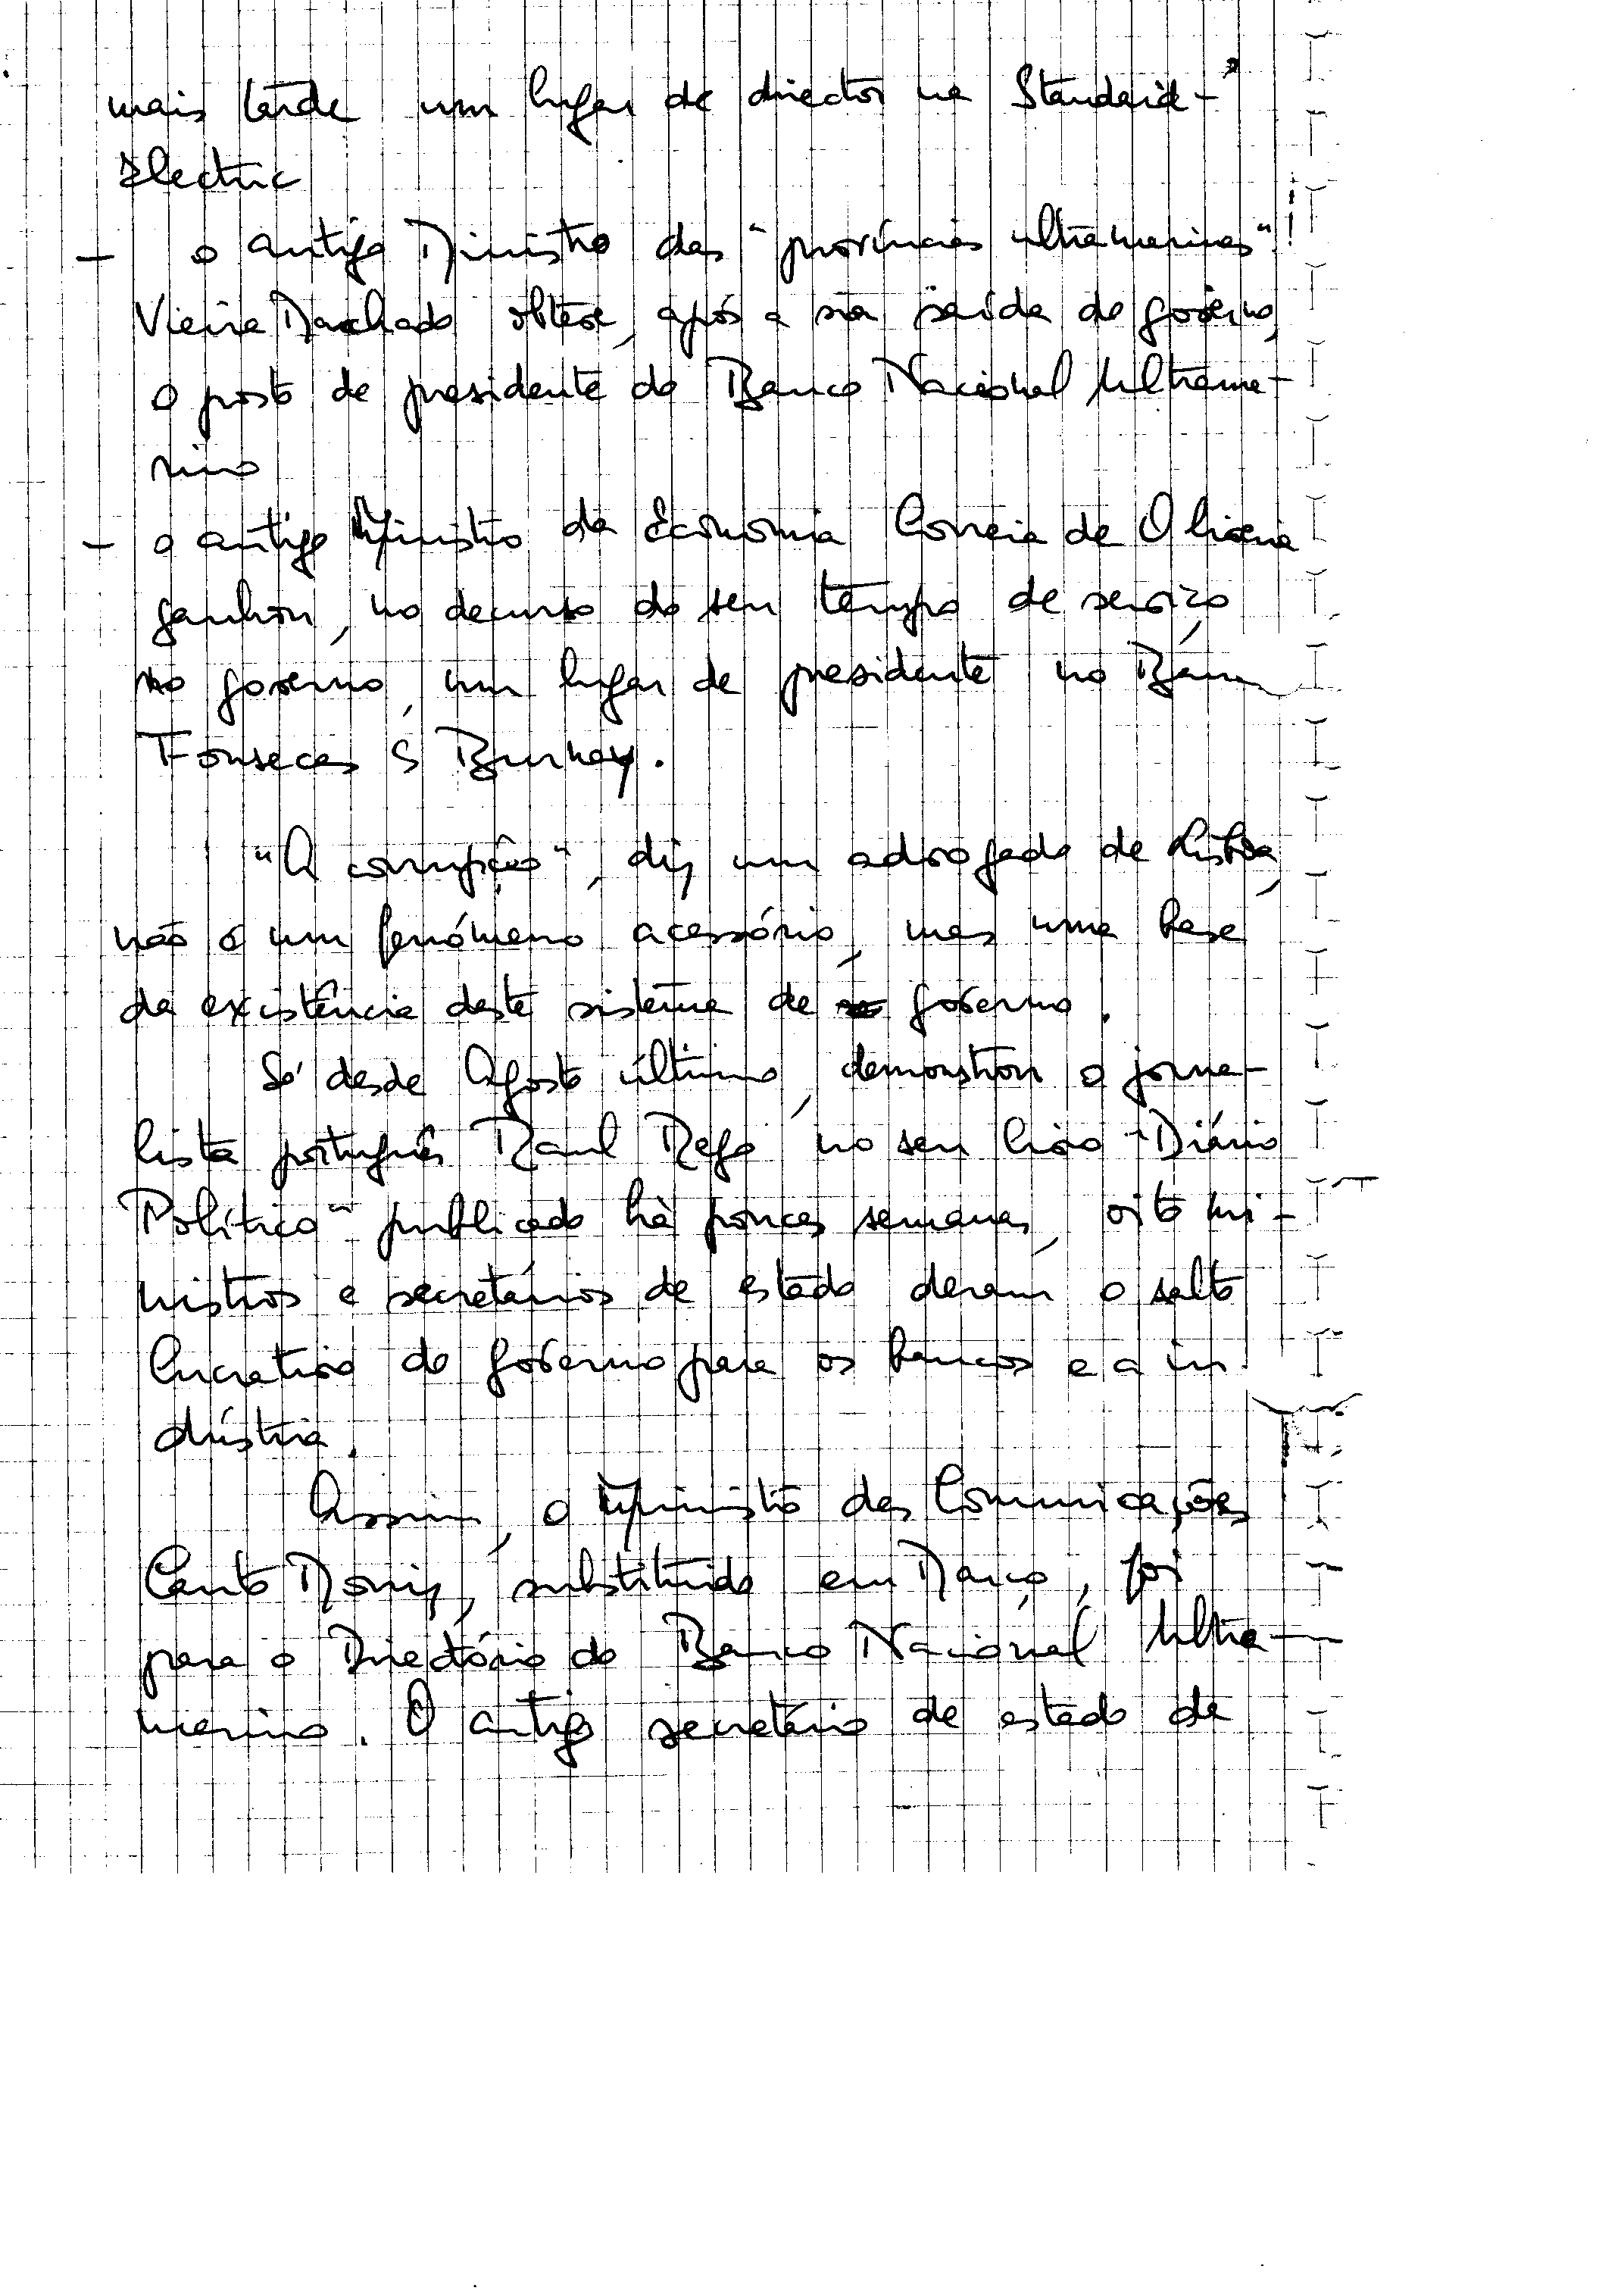 mais tarde um lugar de director na Standard-
Electric
- o antigo Ministro das "províncias ultramarinas"
Vieira Machado obteve, após a sua saída do governo,
o posto de presidente do Banco Nacional Ultrama-
rino
- o antigo Ministro da Economia Correia de Oliveira
ganhou, no decurso do seu tempo de serviço
no governo, um lugar de presidente no Banco
Fonsecas & Burnay.
"A corrupção", diz um advogado de Lisboa,
não é um fenómeno acessório, mas uma base
da existência deste sistema de governo.
Só desde Agosto último, demonstrou o jorna-
lista português Raul Rego no seu livro "Diário
Político" publicado há poucas semanas, oito mi-
nistros e secretários de estado deram o salto
lucrativo do governo para os bancos e a in-
dústria.
Assim, o Ministro das Comunicações
Canto Moniz, substituído em Março, foi
para o Directório do Banco Nacional Ultra-
marino. O antigo secretário de estado de